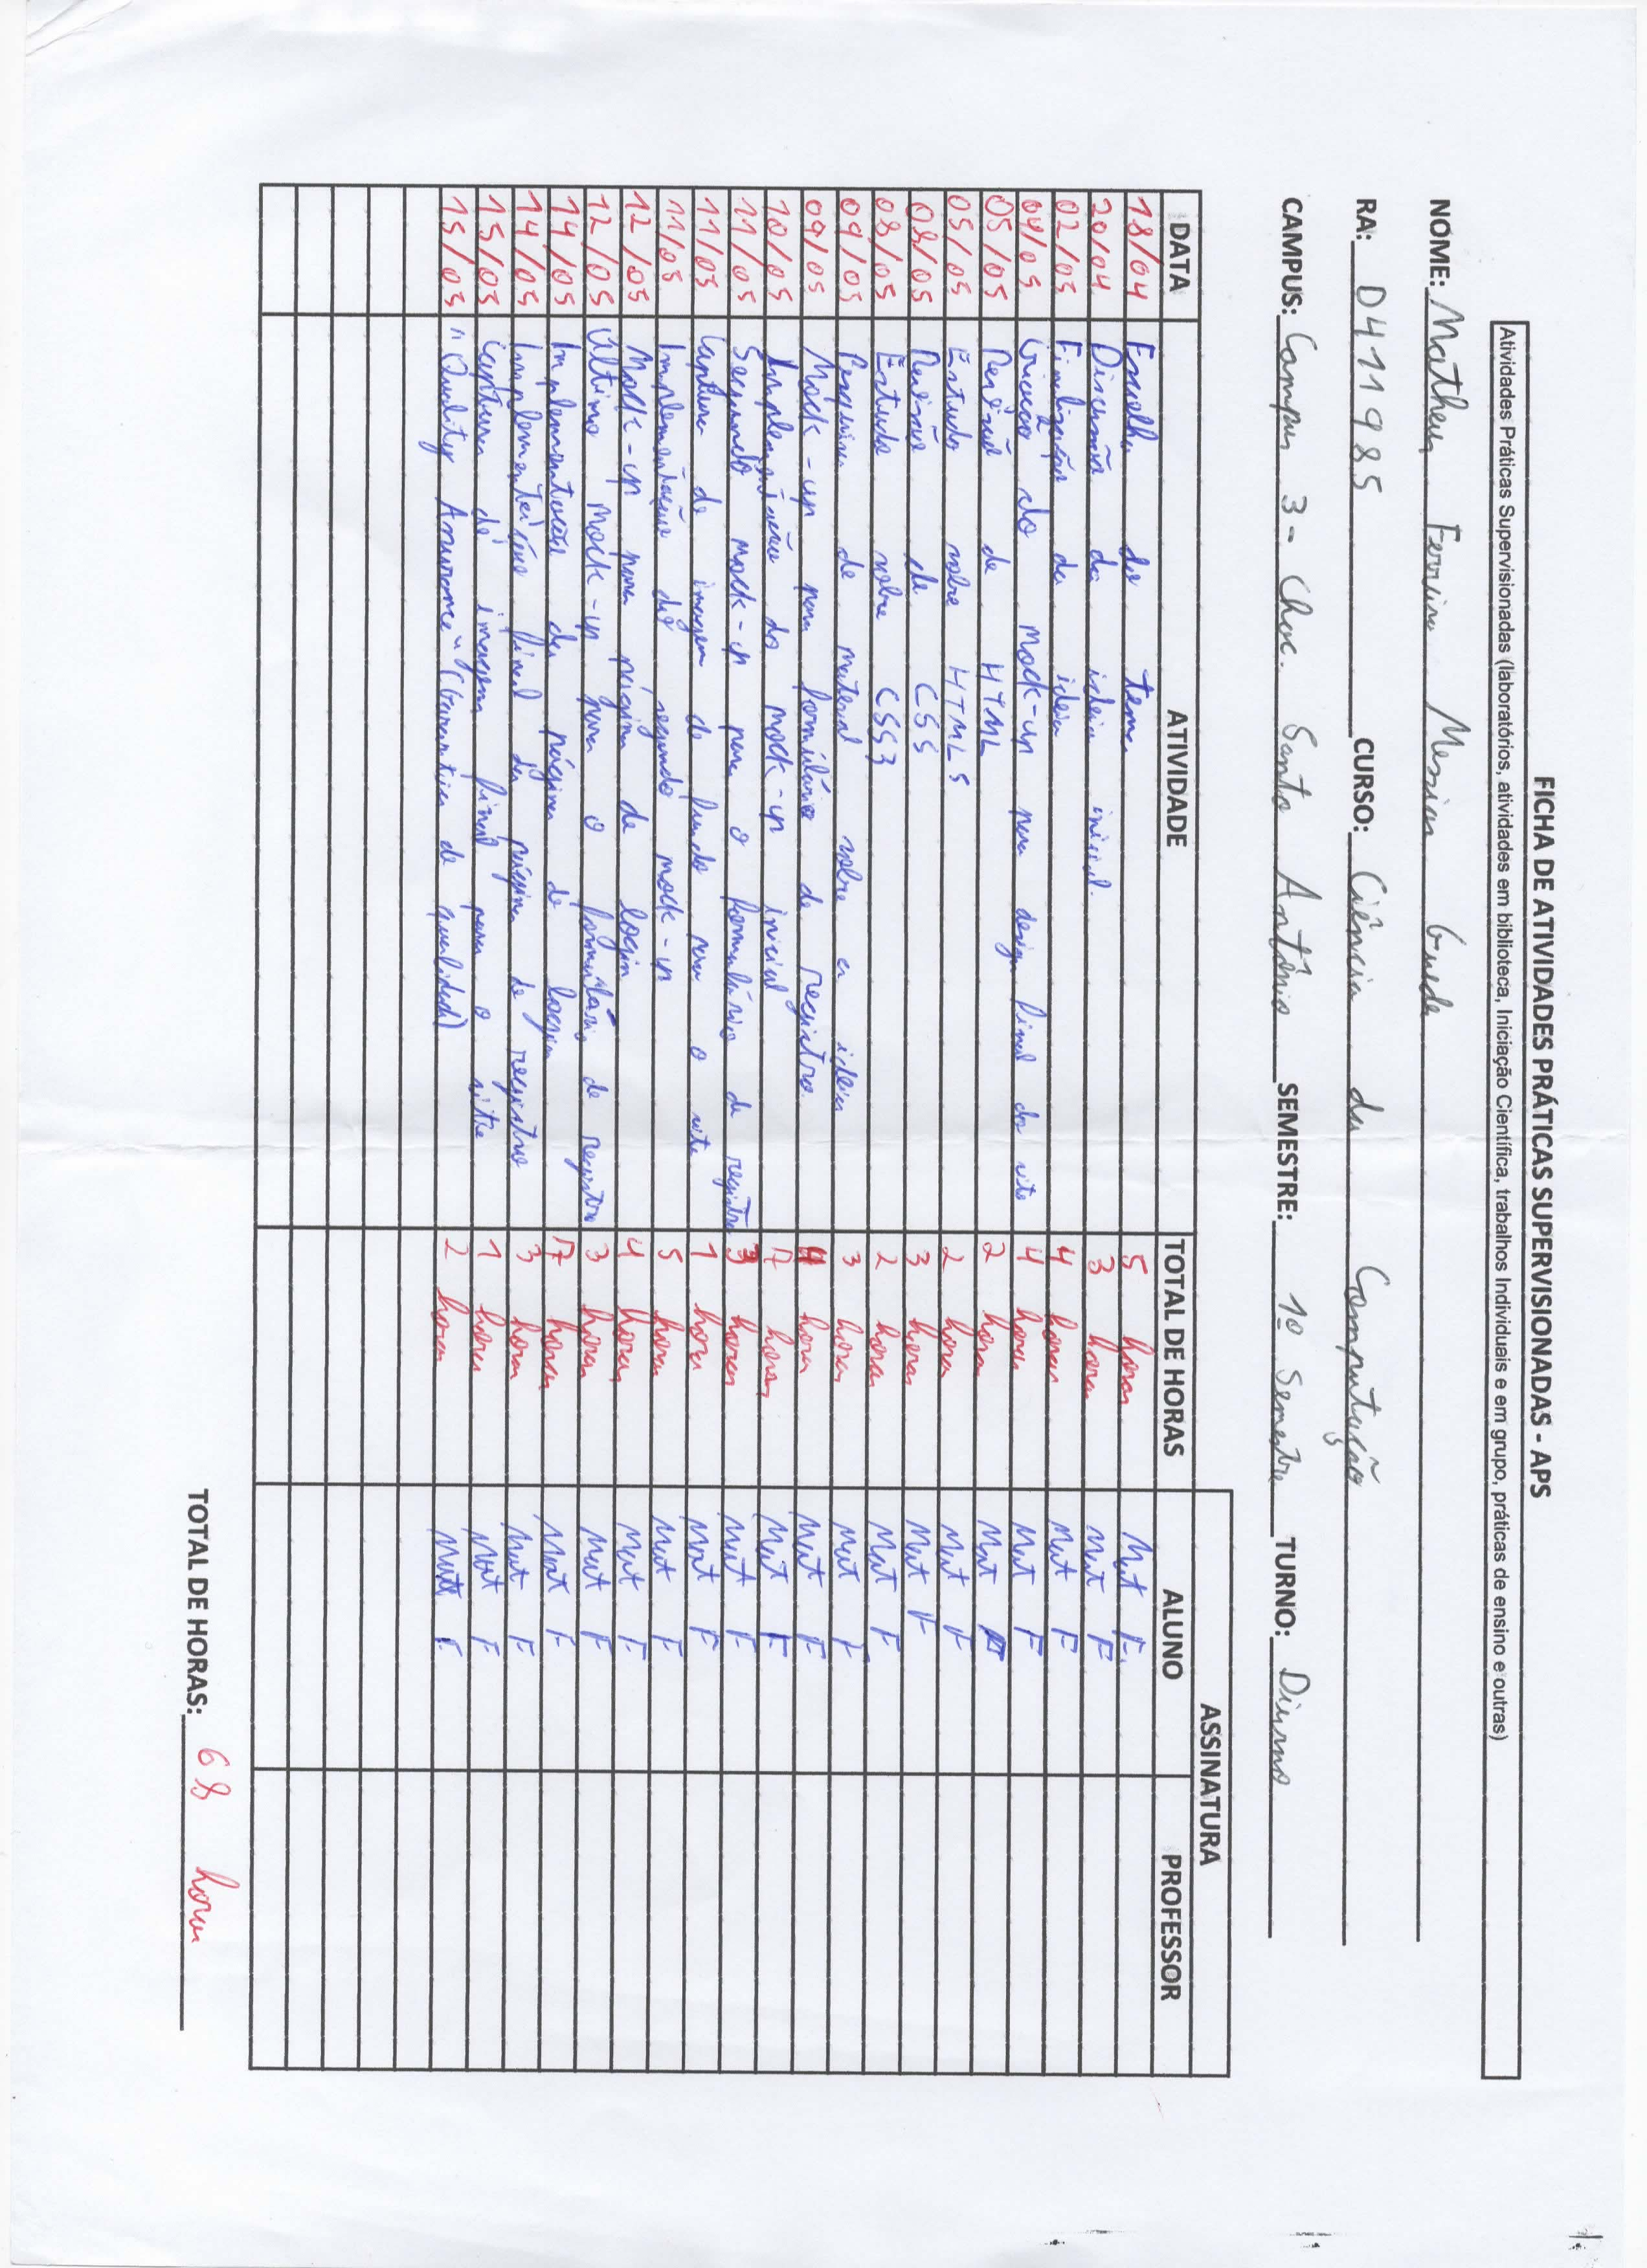 FICHA DE ATIVIDADES PRÁTICAS SUPERVISIONADAS - APS
Atividades Práticas Supervisionadas (laboratórios, atividades em biblioteca, Iniciação Científica, trabalhos Individuais e em grupo, práticas de ensino e outras)
NOME: Matheus Ferreira Messias Guede
RA: D411985 CURSO: Ciência da Computação
CAMPUS: Campus 3 - Chac. Santo Antônio SEMESTRE: 1º Semestre TURNO: Diurno
ASSINATURA
DATA ATIVIDADE TOTAL DE HORAS ALUNO PROFESSOR
18/04 Escolha do tema 5 horas Mat F.
20/04 Discussão da ideia inicial. 3 horas Mat F
02/05 Finalização da ideia 4 horas Mat F
04/05 Criação do mock-up para design final do site 4 horas Mat F
05/05 Revisão de HTML 2 horas Mat F
05/05 Estudo sobre HTML5 2 horas Mat F
08/05 Revisão de CSS 3 horas Mat F
08/05 Estudo sobre CSS3 2 horas Mat F
09/05 Pesquisa de material sobre a ideia 3 horas Mat F
09/05 Mock-up para formulário de registro. horas Mat F
10/05 Implementação do mock-up inicial 7 horas Mat F
11/05 Segundo mock-up para o formulário de registro 3 horas Mat F
11/05 Captura de imagem de fundo para o site 1 hora Mat F
11/05 Implementação do segundo mock-up 5 horas Mat F
12/05 Mock-up para página de login 4 horas Mat F
12/05 Último mock-up para o formulário de registro 3 horas Mat F
14/05 Implementação da página de login 7 horas Mat F
14/05 Implementação final da página de registro 3 horas Mat F
15/05 Captura de imagem final para o site 1 hora Mat F
15/05 "Quality Assurance" (Garantia de qualidade) 2 horas Mat F.
TOTAL DE HORAS: 68 horas